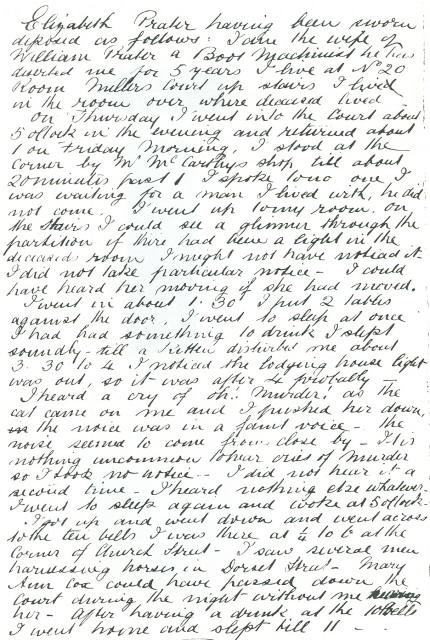 Elizabeth Prater having been sworn
deposed as follows: I am the wife of
William Prater a Boot Machinist he has
deserted me for 5 years I live at No 20
Room Millers Court up stairs I lived
in the room over where deceased lived
on Thursday I went into the Court about
5 o'clock in the evening and returned about
1 on Friday Morning, I stood at the
corner by Mr McCarthys shop till about
20 minutes past 1 I spoke to no one I
was waiting for a man I lived with, he did
not come. I went up to my room. On
the stairs I could see a glimmer through the
partition if there had been a light in the
deceaseds room I might not have noticed it
I did not take particular notice - I could
have heard her moving if she had moved.
I went in about 1.30 I put 2 tables
against the door. I went to sleep at once
I had had something to drink I slept
soundly - till a kitten disturbed me about
3.30 to 4 I noticed the lodging house light
was out, so it was after 4 probably -
I heard a cry of oh! Murder! as the
cat came on me and I pushed her down,
the voice was in a faint voice - the
noise seemed to come from close by - It is
nothing uncommon to hear cries of murder
so I took no notice - I did not hear it a
second time - I heard nothing else whatever
I went to sleep again and woke at 5 oclock -
I got up and went down and went across
to the ten bells I was there at 1/4 to 6 at the
Corner of Church Street - I saw several men
harnessing horses in Dorset Street - Mary
Ann Cox could have passed down the
Court during the night without me hearing
her - After having a drink at the 10 bells
I went home and slept till 11 -